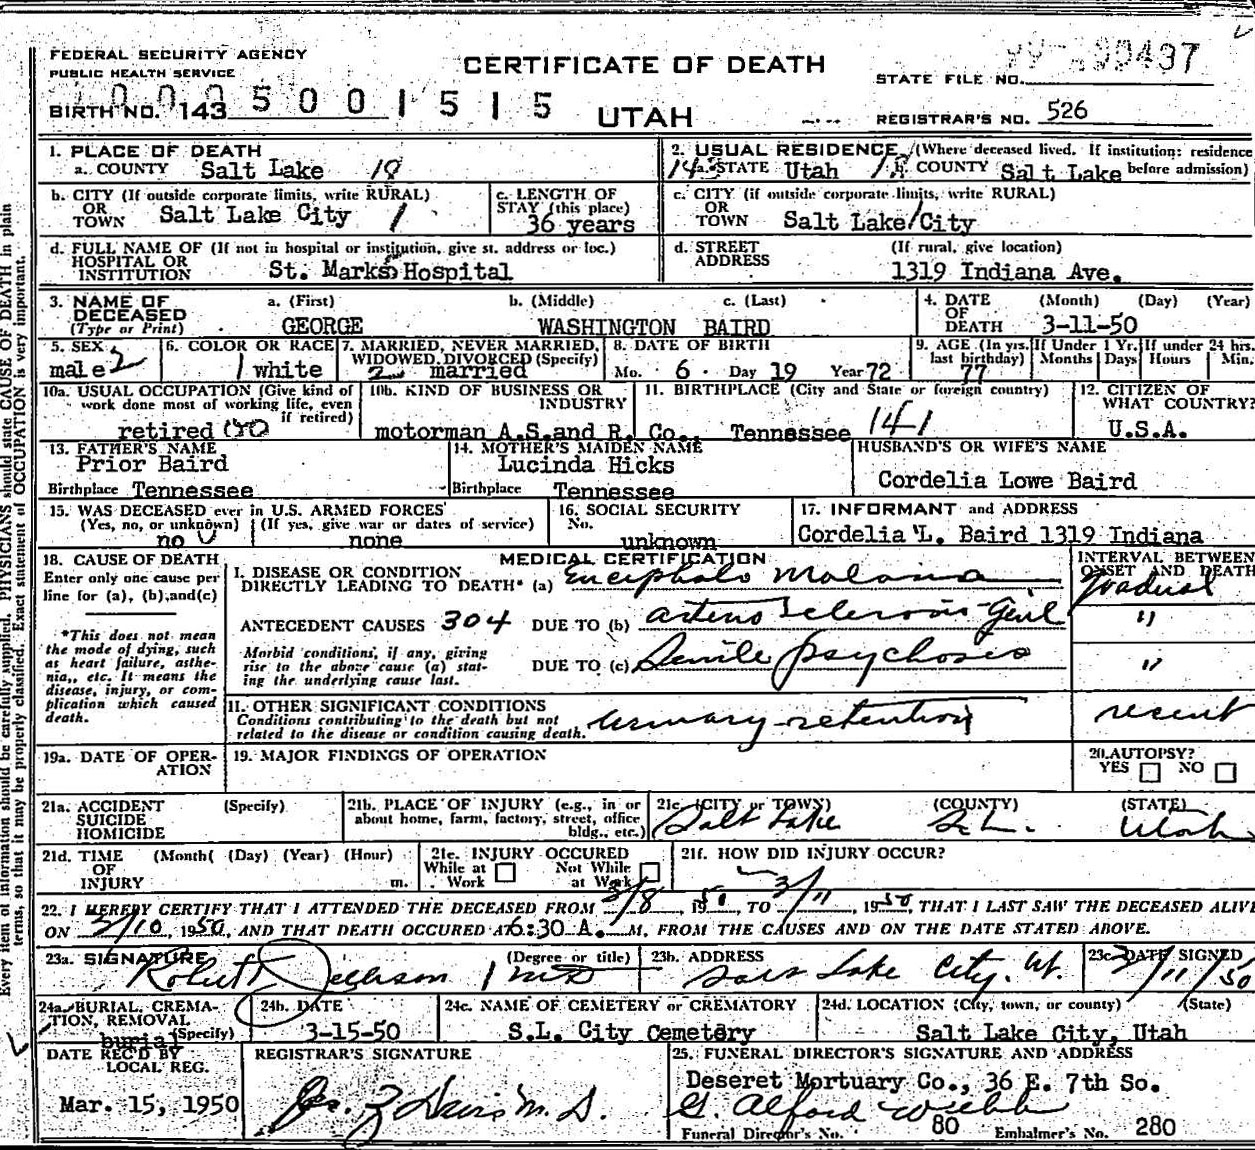 FEDERAL SECURITY AGENCY
PUBLIC HEALTH SERVICE
CERTIFICATE OF DEATH
UTAH
STATE FILE NO.
BIRTH NO. 143
5 0 0 1 5 1 5
REGISTRAR'S NO. 526
1. PLACE OF DEATH
a. COUNTY Salt Lake
2. USUAL RESIDENCE (Where deceased lived. If institution: residence before admission)
a. STATE Utah b. COUNTY Salt Lake
b. CITY (If outside corporate limits, write RURAL)
OR
TOWN Salt Lake City
c. LENGTH OF
STAY (this place)
36 years
c. CITY (if outside corporate limits, write RURAL)
OR
TOWN Salt Lake City
d. FULL NAME OF (If not in hospital or institution, give st. address or loc.)
HOSPITAL OR
INSTITUTION St. Marks Hospital
d. STREET (If rural, give location)
ADDRESS 1319 Indiana Ave.
3. NAME OF
DECEASED
(Type or Print)
a. (First) b. (Middle) c. (Last)
GEORGE WASHINGTON BAIRD
4. DATE (Month) (Day) (Year)
OF
DEATH 3-11-50
5. SEX
male 2
6. COLOR OR RACE
1 white
7. MARRIED, NEVER MARRIED,
WIDOWED, DIVORCED (Specify)
2 married
8. DATE OF BIRTH
Mo. 6 Day 19 Year 72
9. AGE (In yrs. last birthday)
77
If Under 1 Yr. Months Days
If under 24 hrs. Hours Min.
10a. USUAL OCCUPATION (Give kind of
work done most of working life, even
if retired)
retired
10b. KIND OF BUSINESS OR
INDUSTRY
motorman A.S.and R. Co.
11. BIRTHPLACE (City and State or foreign country)
Tennessee 141
12. CITIZEN OF
WHAT COUNTRY?
U.S.A.
13. FATHER'S NAME
Prior Baird
Birthplace Tennessee
14. MOTHER'S MAIDEN NAME
Lucinda Hicks
Birthplace Tennessee
HUSBAND'S OR WIFE'S NAME
Cordelia Lowe Baird
15. WAS DECEASED ever in U.S. ARMED FORCES?
(Yes, no, or unknown) (If yes, give war or dates of service)
no none
16. SOCIAL SECURITY
No.
unknown
17. INFORMANT and ADDRESS
Cordelia L. Baird 1319 Indiana
18. CAUSE OF DEATH
Enter only one cause per
line for (a), (b),and(c)
*This does not mean
the mode of dying, such
as heart failure, asthe-
nia,, etc. It means the
disease, injury, or com-
plication which caused
death.
MEDICAL CERTIFICATION
I. DISEASE OR CONDITION
DIRECTLY LEADING TO DEATH* (a) Encephalo Malacia
ANTECEDENT CAUSES 304 DUE TO (b) arterio Sclerosis Genl
Morbid conditions, if any, giving
rise to the above cause (a) stat-
ing the underlying cause last.
DUE TO (c) Senile psychosis
INTERVAL BETWEEN
ONSET AND DEATH
gradual
"
"
II. OTHER SIGNIFICANT CONDITIONS
Conditions contributing to the death but not
related to the disease or condition causing death.
urinary retention
recent
19a. DATE OF OPER-
ATION
19. MAJOR FINDINGS OF OPERATION
20. AUTOPSY?
YES NO
21a. ACCIDENT (Specify)
SUICIDE
HOMICIDE
21b. PLACE OF INJURY (e.g., in or
about home, farm, factory, street, office
bldg., etc.)
21c. (CITY or TOWN) (COUNTY) (STATE)
Salt Lake S.L. Utah
21d. TIME (Month( (Day) (Year) (Hour)
OF
INJURY m.
21e. INJURY OCCURED
While at Work Not While at Work
21f. HOW DID INJURY OCCUR?
22. I HEREBY CERTIFY THAT I ATTENDED THE DECEASED FROM 3/8, 1950, TO 3/11, 1950, THAT I LAST SAW THE DECEASED ALIVE
ON 3/10 1950, AND THAT DEATH OCCURED AT 6:30 A. M, FROM THE CAUSES AND ON THE DATE STATED ABOVE.
23a. SIGNATURE (Degree or title)
Robert MD
23b. ADDRESS
Salt Lake City, Ut.
23c. DATE SIGNED
3/11/50
24a. BURIAL, CREMA-
TION, REMOVAL
(Specify)
burial
24b. DATE
3-15-50
24c. NAME OF CEMETERY or CREMATORY
S.L. City Cemetery
24d. LOCATION (City, town, or county) (State)
Salt Lake City, Utah
DATE REC'D BY
LOCAL REG.
Mar. 15, 1950
REGISTRAR'S SIGNATURE
Davis M.D.
25. FUNERAL DIRECTOR'S SIGNATURE AND ADDRESS
Deseret Mortuary Co., 36 E. 7th So.
G. Alford Webb
Funeral Director's No. 80 Embalmer's No. 280
Every item of information should be carefully supplied. PHYSICIANS should state CAUSE OF DEATH in plain
terms, so that it may be properly classified. Exact statement of OCCUPATION is very important.